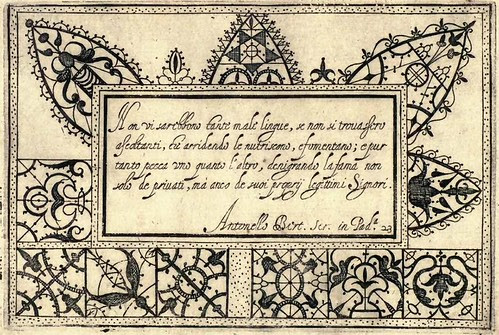 Non vi sarebbono tante male lingue, se non si trouassero
ascoltanti, che arridendo le nutriscono, e fomentano; e pur
tanto pecca vno quanto l'altro, denigrando la fama non
solo de priuati, mà anco de suoi proprij legittimi Signori.
Antonello Bert. Scr. in Pad.ᵃ 23